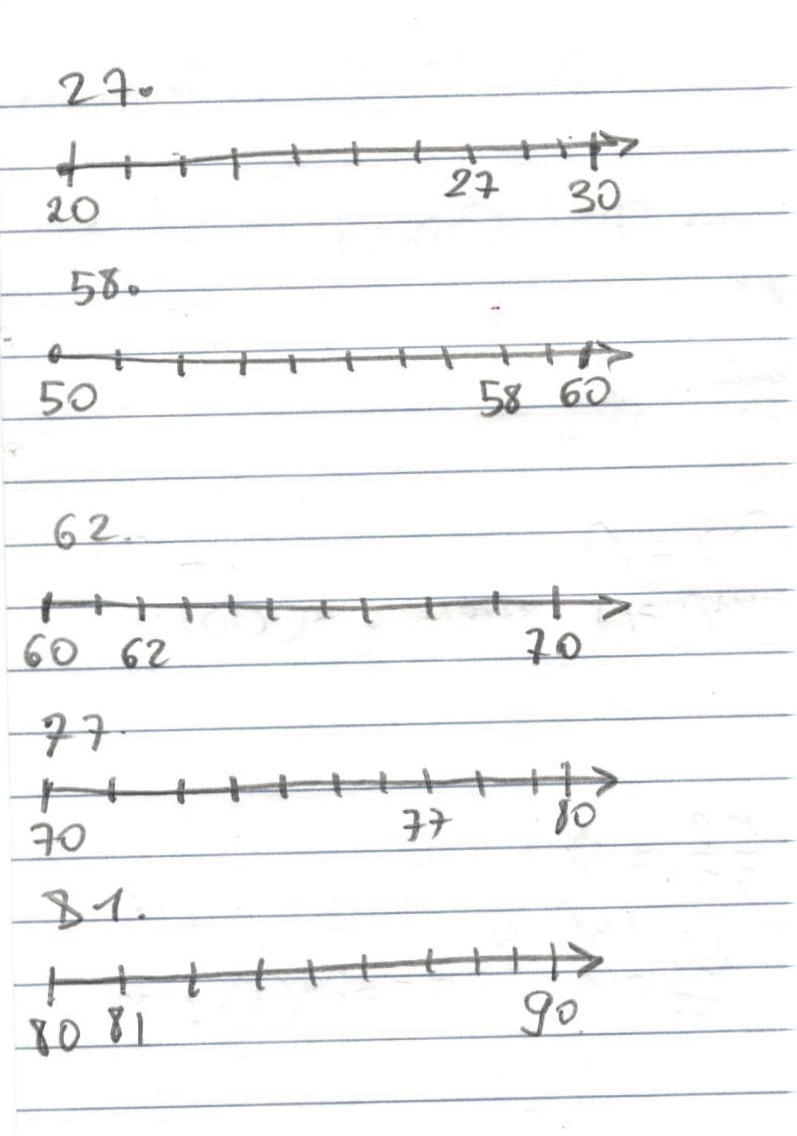 27.
20 27 30
58.
50 58 60
62.
60 62 70
77.
70 77 80
81.
80 81 90